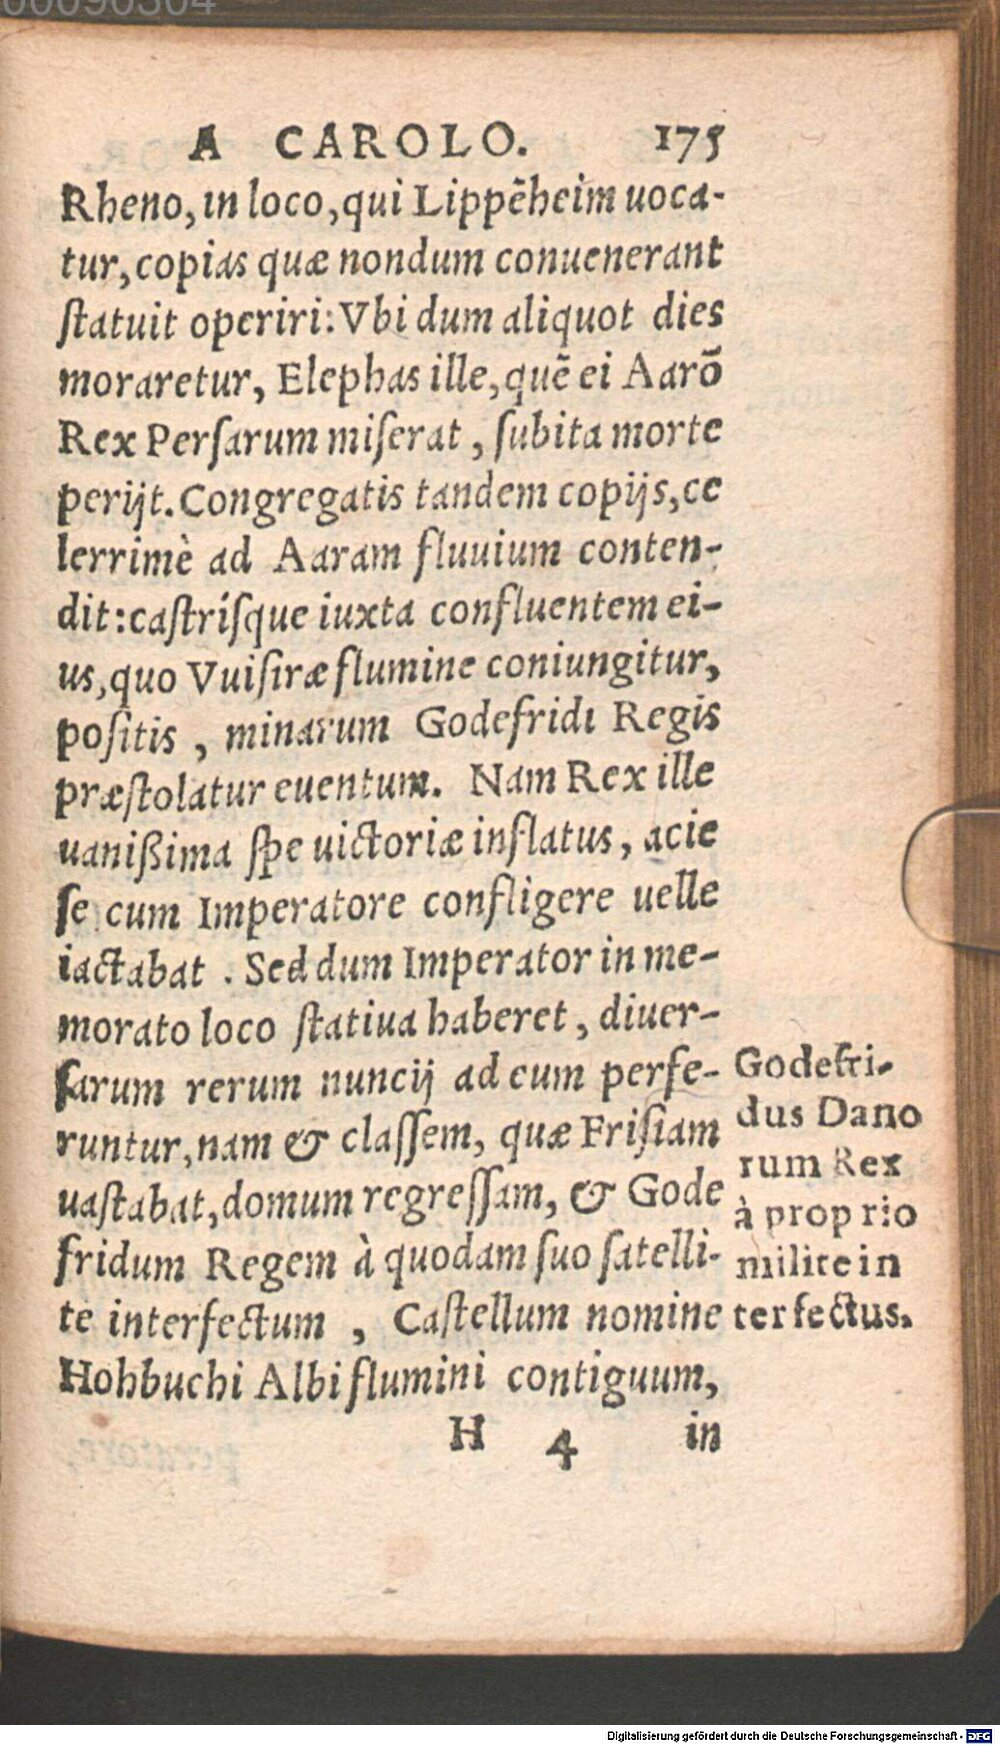 00090304
A CAROLO. 175
Rheno, in loco, qui Lippēheim uoca-
tur, copias quæ nondum conuenerant
ſtatuit operiri: Vbi dum aliquot dies
moraretur, Elephas ille, quē ei Aarō
Rex Perſarum miſerat, ſubita morte
perijt. Congregatis tandem copijs, ce
lerrimè ad Aaram fluuium conten-
dit: caſtríſque iuxta confluentem ei-
us, quo Vuiſiræ flumine coniungitur,
poſitis, minarum Godefridi Regis
præſtolatur euentum. Nam Rex ille
uanißima ſpe uictoriæ inflatus, acie
ſe cum Imperatore confligere uelle
iactabat. Sed dum Imperator in me-
morato loco ſtatiua haberet, diuer-
ſarum rerum nuncij ad eum perfe-
runtur, nam & claſſem, quæ Friſiam
uaſtabat, domum regreſſam, & Gode
fridum Regem à quodam ſuo ſatelli-
te interfectum, Caſtellum nomine
Hohbuchi Albi flumini contiguum,
H 4 in
Godefri-
dus Dano
rum Rex
à proprio
milite in
terfectus.
Digitalisierung gefördert durch die Deutsche Forschungsgemeinschaft - DFG